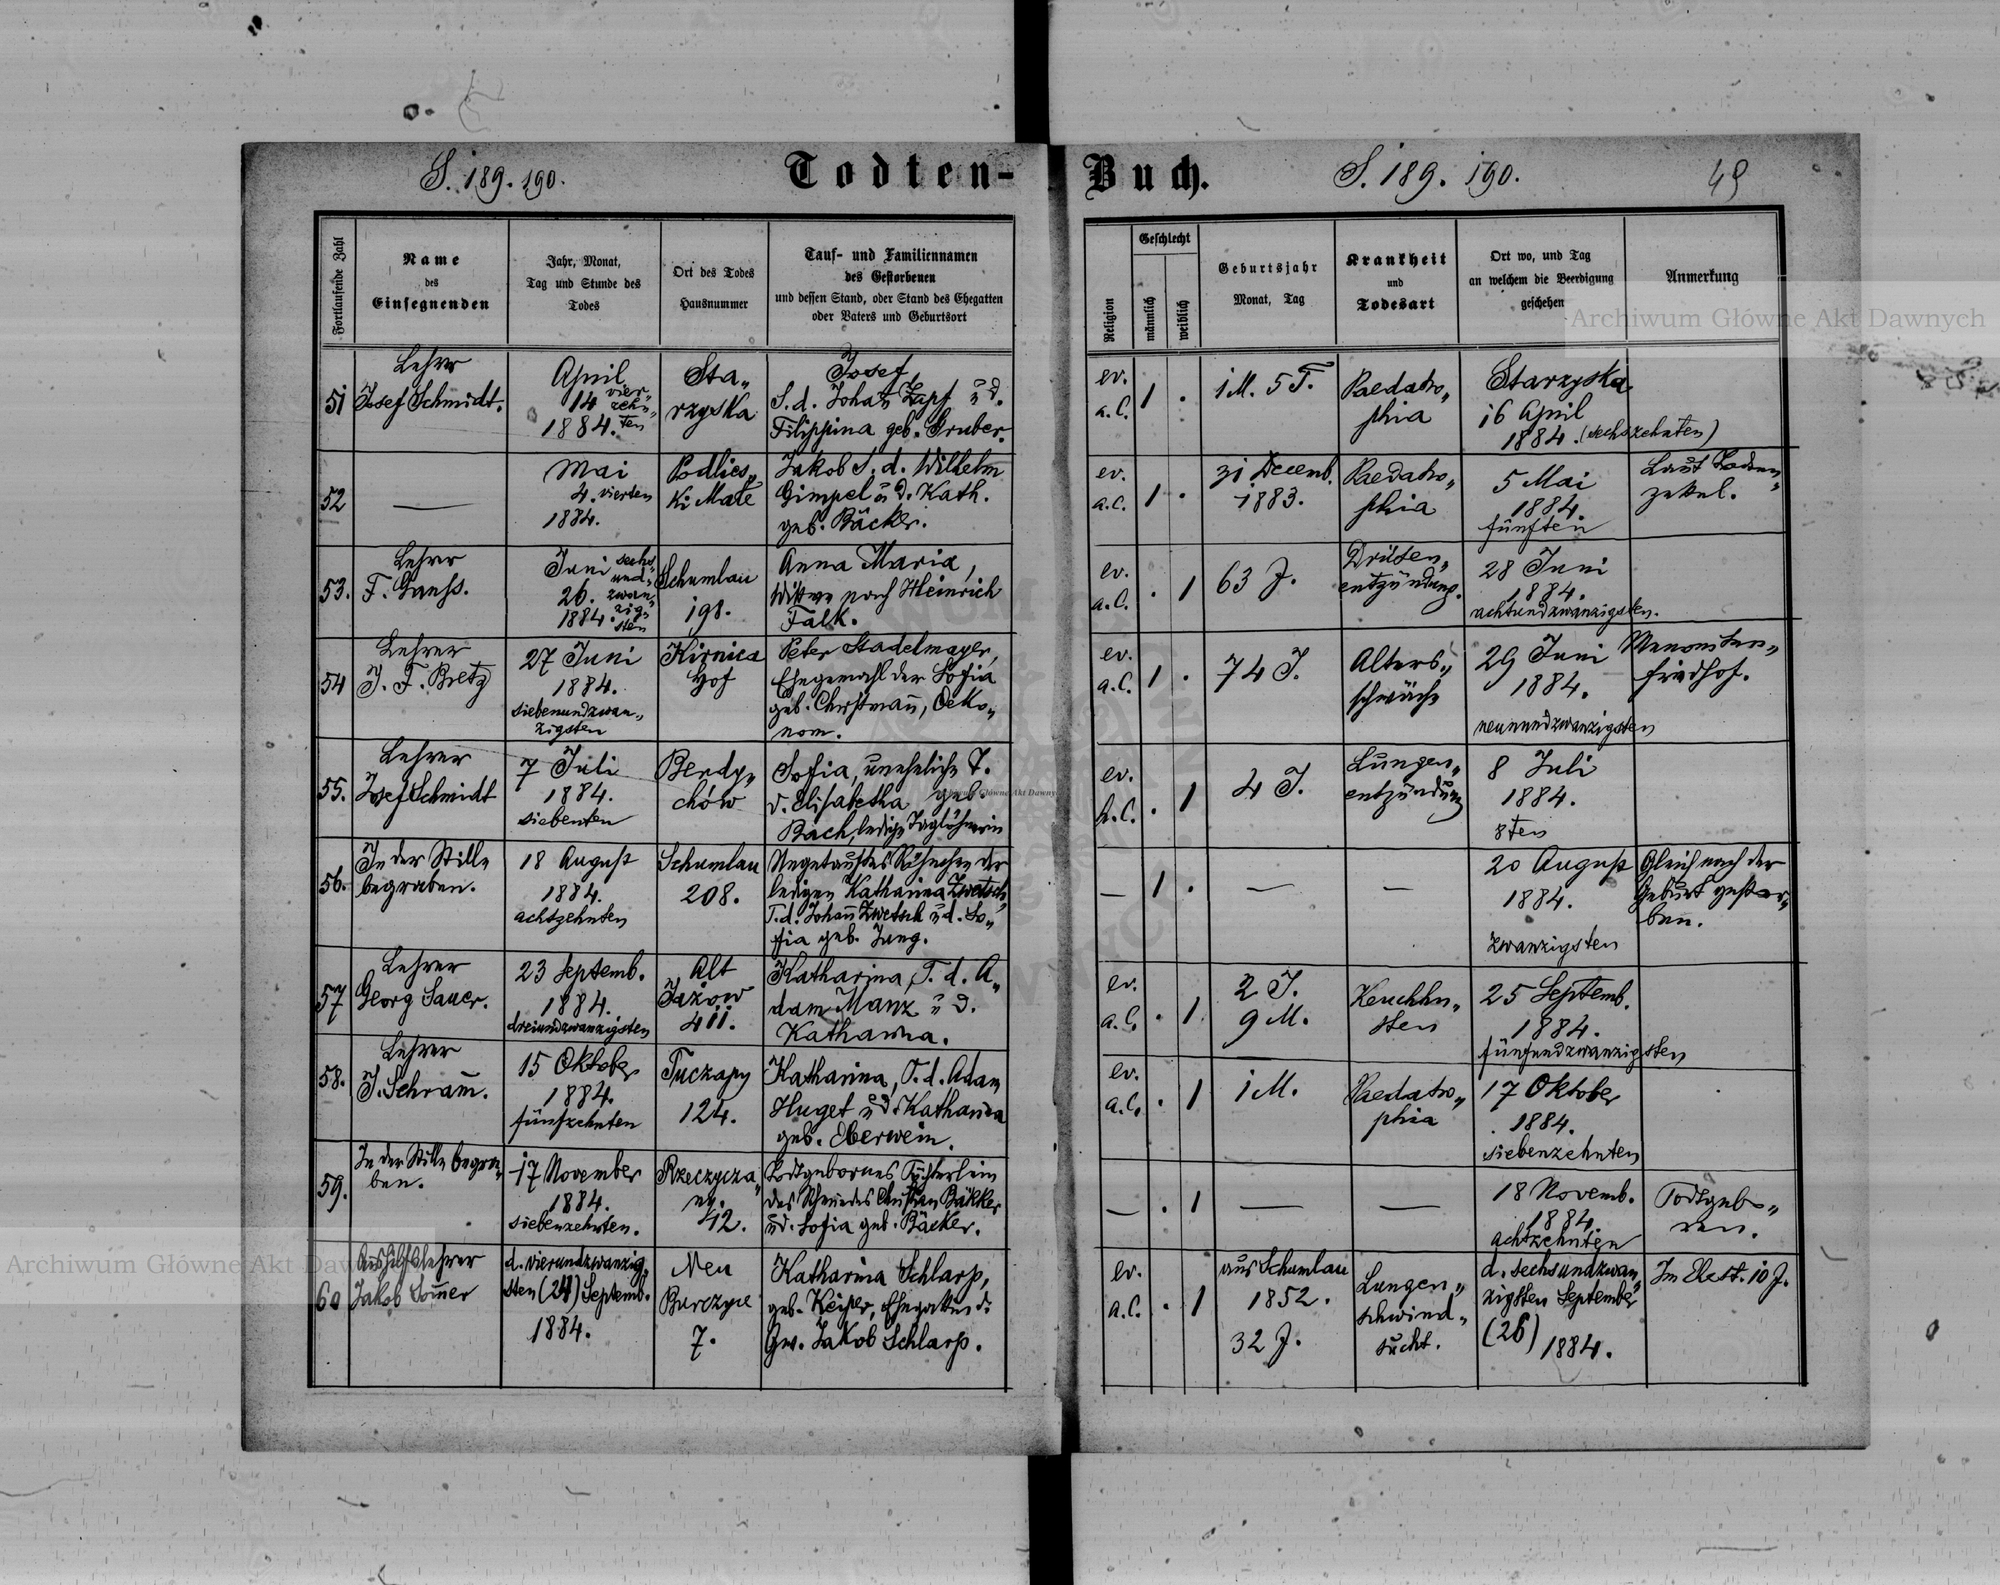 S. 189. 190.
Todten-
Buch.
S. 189. 190.
49
Fortlaufende Zahl
Name
des
Einsegnenden
Jahr, Monat,
Tag und Stunde des
Todes
Ort des Todes
Hausnummer
Tauf- und Familiennamen
des Gestorbenen
und dessen Stand, oder Stand des Ehegatten
oder Vaters und Geburtsort
Religion
Geschlecht
männlich
weiblich
Geburtsjahr
Monat, Tag
Krankheit
und
Todesart
Ort wo, und Tag
an welchem die Beerdigung
geschehen
Anmerkung
51
Lehrer
Josef Schmidt.
April
14 vier-
zehn-
1884. ten
Sta-
rzyska
Josef,
S. d. Johan̅ Zapf u̅ d.
Filippina geb. Gruber.
ev.
a.C.
1 .
1 M. 5 T.
Paedatro-
phia
Starzyska
16 April
1884. (sechszehnten)
52
—
Mai
4. vierten
1884.
Podlies-
ki Małe
Jakob S. d. Wilhelm
Gimpel u̅ d. Kath.
geb. Bäcker.
ev.
a.C.
1 .
31 Decemb.
1883.
Paedatro-
phia
5 Mai
1884.
fünften
Laut Todten-
zettel.
53.
Lehrer
F. Ganss.
Juni sechs-
und-
26. zwan-
zig-
1884. sten
Schumlau
198.
Anna Maria,
Witwe nach Heinrich
Falk.
ev.
a.C.
. 1
63 J.
Drüsen-
entzündung.
28 Juni
1884.
achtundzwanzigsten.
54
Lehrer
J. F. Bretz
27 Juni
1884.
siebenundzwan-
zigsten
Kirnica
Hof
Peter Stadelmayer,
Ehegemahl der Sofia
geb. Christman̅, Oeko-
nom.
ev.
a.C.
1 .
74 J.
Alters-
schwäche
29 Juni
1884.
neunundzwanzigsten
Menoniten-
friedhof.
55.
Lehrer
Josef Schmidt
7 Juli
1884.
siebenten
Berdy-
chów
Sofia, uneheliche T.
d. Elisabetha geb.
Bach, ledige Taglöhnerin
ev.
h.C.
. 1
4 J.
Lungen-
entzündung
8 Juli
1884.
8ten
56.
In der Stille
begraben.
18 August
1884.
achtzehnten
Schumlau
208.
Ungetauftes Söhnchen der
ledigen Katharina Zwetsch
T. d. Johan̅ Zwetsch u̅ d. So-
fia geb. Jung.
—
1 .
—
—
20 August
1884.
zwanzigsten
Gleich nach der
Geburt gestor-
ben.
57
Lehrer
Georg Sauer.
23 Septemb.
1884.
dreiundzwanzigsten
Alt
Jazow
411.
Katharina, T. d. A-
dam Manz u̅ d.
Katharina.
ev.
a.C.
. 1
2 J.
9 M.
Keuchhu-
sten
25 Septemb.
1884.
fünfundzwanzigsten
58.
Lehrer
J. Schram̅.
15 Oktober
1884.
fünfzehnten
Tuczapy
124.
Katharina, T. d. Adam
Huget u̅ d. Katharina
geb. Eberwein.
ev.
a.C.
. 1
1 M.
Paedatro-
phia
17 Oktober
1884.
siebenzehnten
59.
In der Stille begra-
ben.
17 November
1884.
siebenzehnten.
Rzeczycza-
ny.
42.
Todtgebornes Töchterlein
des Schmiedes Christian Bäkker
u̅ d. Sofia geb. Bäcker.
—
. 1
—
—
18 Novemb.
1884.
achtzehnten
Todtgebo-
ren.
60
Aushilfslehrer
Jakob Som̅er
d. vierundzwanzig-
sten (24) Septemb.
1884.
Neu
Burczyce
7.
Katharina Schlarp,
geb. Keiper, Ehegattin d.
Gw. Jakob Schlarp.
ev.
a.C.
. 1
aus Schumlau
1852.
32 J.
Lungen-
schwind-
sucht.
d. sechsundzwan-
zigsten September
(26)
1884.
Im Ehest. 10 J.
Archiwum Główne Akt Dawnych
Archiwum Główne Akt Dawnych